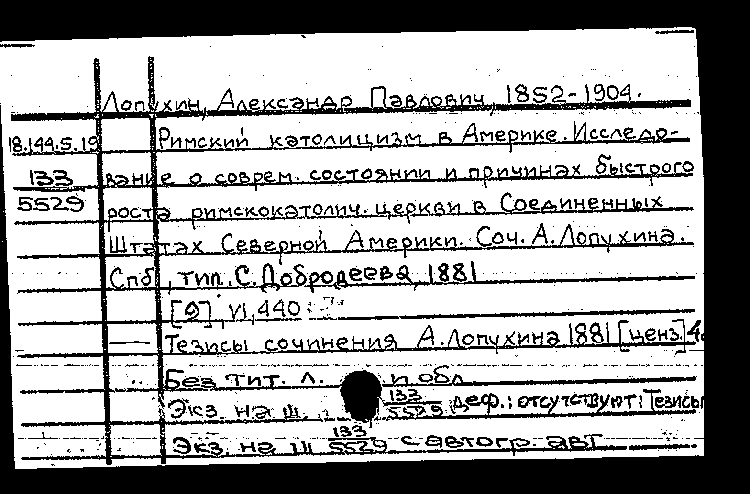 Лопухин, Александр Павлович, 1852-1904.
18.144.5.19 Римский католицизм в Америке. Исследо-
133 вание о соврем. состоянии и причинах быстрого
5529 роста римскокатолич. церкви в Соединенных
Штатах Северной Америки. Соч. А. Лопухина.
Спб, тип. С. Добродеева, 1881
[2], VI, 440
Тезисы сочинения А. Лопухина 1881 [ценз.]
Без тит. л. и обл.
Экз. на ш. 133/5529 деф.: отсутствуют: Тезисы
Экз. на ш 133/5529 с автогр. авт